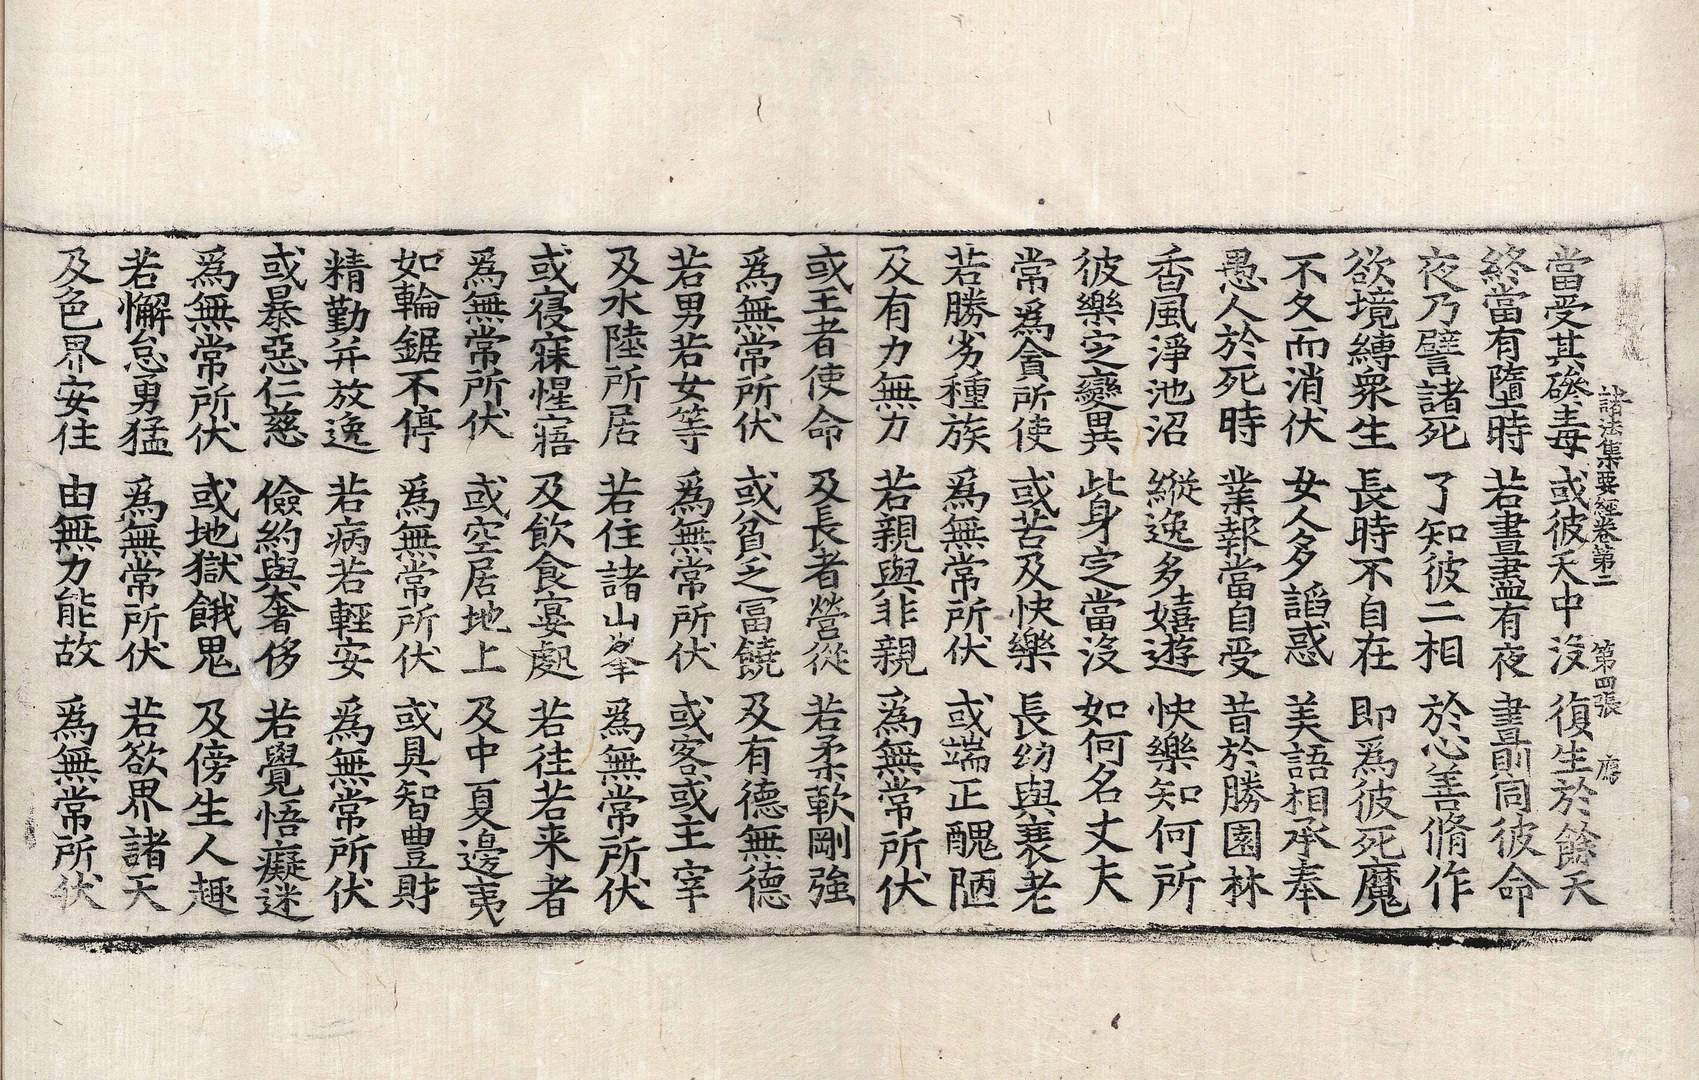 諸法集要經卷第二　第四張　癈
當受其磣毒　或彼天中沒　復生於餘天
終當有墮時　若晝盡有夜　晝則同彼命
夜乃譬諸死　了知彼二相　於心善脩作
欲境縛衆生　長時不自在　即爲彼死魔
不久而消伏　女人多謟惑　美語相承奉
愚人於死時　業報當自受　昔於勝園林
香風淨池沼　縱逸多嬉遊　快樂知何所
彼樂定變異　此身定當沒　如何名丈夫
常爲貪所使　或苦及快樂　長幼與衰老
若勝劣種族　爲無常所伏　或端正醜陋
及有力無力　若親與非親　爲無常所伏
或王者使命　及長者營從　若柔軟剛強
爲無常所伏　或貧乏冨饒　及有德無德
若男若女等　爲無常所伏　或客或主宰
及水陸所居　若住諸山峯　爲無常所伏
或寝寐惺寤　及飲食宴處　若往若来者
爲無常所伏　或空居地上　及中夏邊夷
如輪鋸不停　爲無常所伏　或具智豊財
精勤并放逸　若病若輕安　爲無常所伏
或暴惡仁慈　儉約與奢侈　若覺悟癡迷
爲無常所伏　或地獄餓鬼　及傍生人趣
若懈怠勇猛　爲無常所伏　若欲界諸天
及色界安住　由無力能故　爲無常所伏